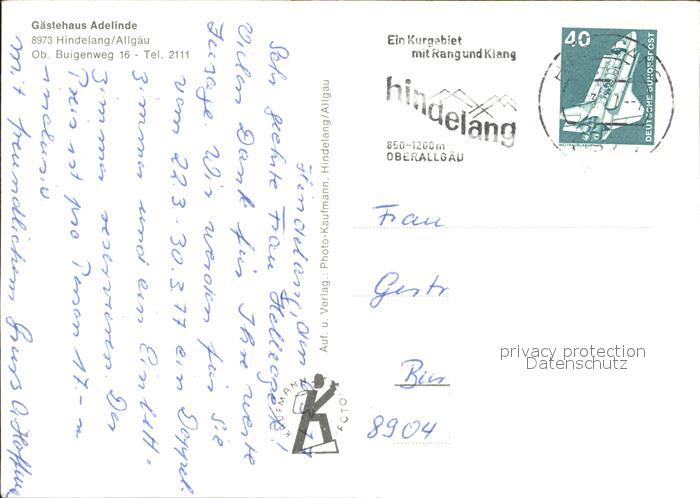 Gästehaus Adelinde
8973 Hindelang/Allgäu
Ob. Buigenweg 16 - Tel. 2111
Hindelang, den
Sehr geehrte Frau
Vielen Dank für Ihre werte
Zusage. Wir werden für Sie
vom 22.3-30.3.77 ein Doppel-
zimmer und ein Einbett-
zimmer reservieren. Der
Preis ist pro Person 17.-
inclusiv
Mit freundlichem Gruss
Auf. u. Verlag.: Photo-Kaufmann, Hindelang/Allgäu
KAUFMANN FOTO
Ein Kurgebiet
mit Rang und Klang
hindelang
850-1200m
OBERALLGÄU
40
DEUTSCHE BUNDESPOST
Frau
8904
privacy protection
Datenschutz